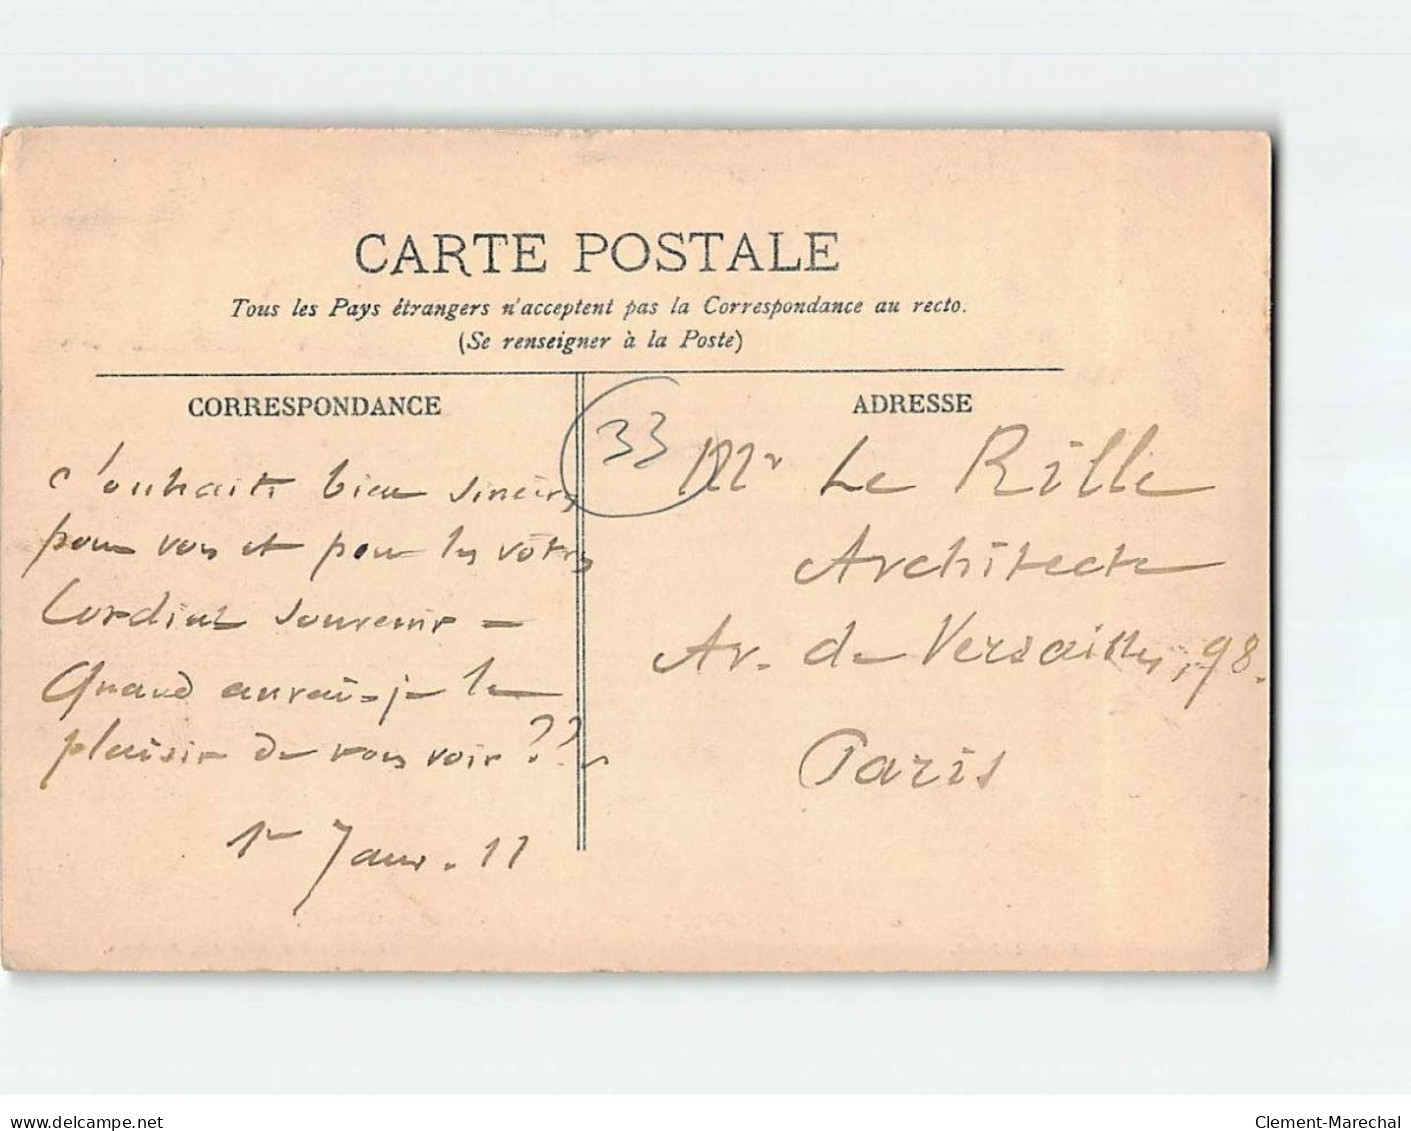 CARTE POSTALE
Tous les Pays étrangers n'acceptent pas la Correspondance au recto.
(Se renseigner à la Poste)
CORRESPONDANCE
souhaits bien sincères
pour vous et pour les vôtres
Cordial souvenir —
Quand aurai-je le
plaisir de vous voir ??
1er Janv. 11
33
ADRESSE
Mr Le Rille
Architecte
Av. de Versailles, 98.
Paris
www.delcampe.net
Clement-Marechal